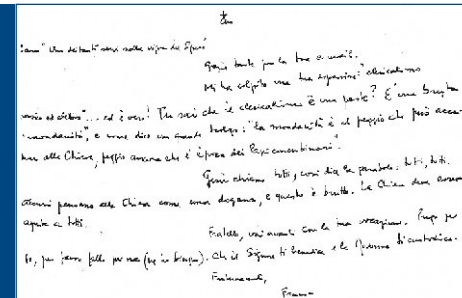 "Un de tanti servi nella vigna del Signore"
Grazie tante per la tua e-mail.
Mi ha colpito una tua espressione: "clericalismo
... ed è vero! Tu sai che il clericalismo è una peste? E' una brutta
"mondanità", e come dice un grande teologo: "la mondanità è il peggio che può acca-
dere alla Chiesa, peggio ancora che l'epoca dei Papi concubinari".
Gesù chiama tutti, così dice la parabola: tutti, tutti.
Alcuni pensano alla Chiesa come una dogana, e questo è brutto. La Chiesa deve essere
aperta a tutti.
Fratello, vai avanti con la tua vocazione. Prego per
te, per favore fallo per me (ne ho bisogno). Che il Signore ti benedica e la Madonna ti custodisca.
Fraternamente,